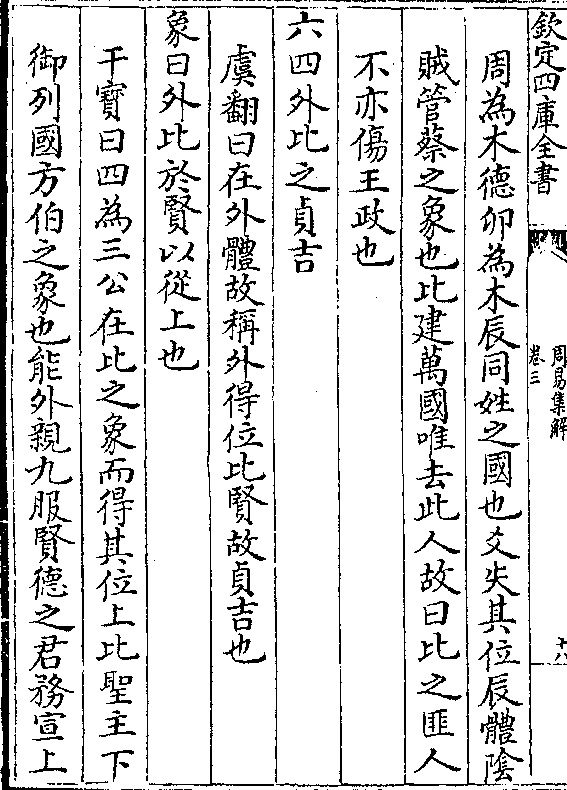 欽定四庫全書
周易集解
卷三
十八
周為木德卯為木辰同姓之國也爻失其位辰體陰
賊管蔡之象也比建萬國唯去此人故曰比之匪人
不亦傷王政也
六四外比之貞吉
虞翻曰在外體故稱外得位比賢故貞吉也
象曰外比於賢以從上也
干寶曰四為三公在比之象而得其位上比聖主下
御列國方伯之象也能外親九服賢德之君務宣上